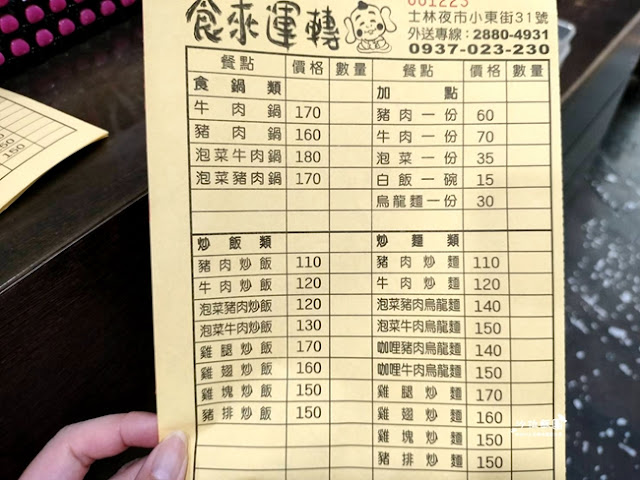 食來運轉
001223
士林夜市小東街31號
外送專線：2880-4931
0937-023-230
餐點 價格 數量 餐點 價格 數量
食鍋類 加點
牛肉鍋 170 豬肉一份 60
豬肉鍋 160 牛肉一份 70
泡菜牛肉鍋 180 泡菜一份 35
泡菜豬肉鍋 170 白飯一碗 15
烏龍麵一份 30
炒飯類 炒麵類
豬肉炒飯 110 豬肉炒麵 110
牛肉炒飯 120 牛肉炒麵 120
泡菜豬肉炒飯 120 泡菜豬肉烏龍麵 140
泡菜牛肉炒飯 130 泡菜牛肉烏龍麵 150
雞腿炒飯 170 咖哩豬肉烏龍麵 140
雞翅炒飯 160 咖哩牛肉烏龍麵 150
雞塊炒飯 150 雞腿炒麵 170
豬排炒飯 150 雞翅炒麵 160
雞塊炒麵 150
豬排炒麵 150
150